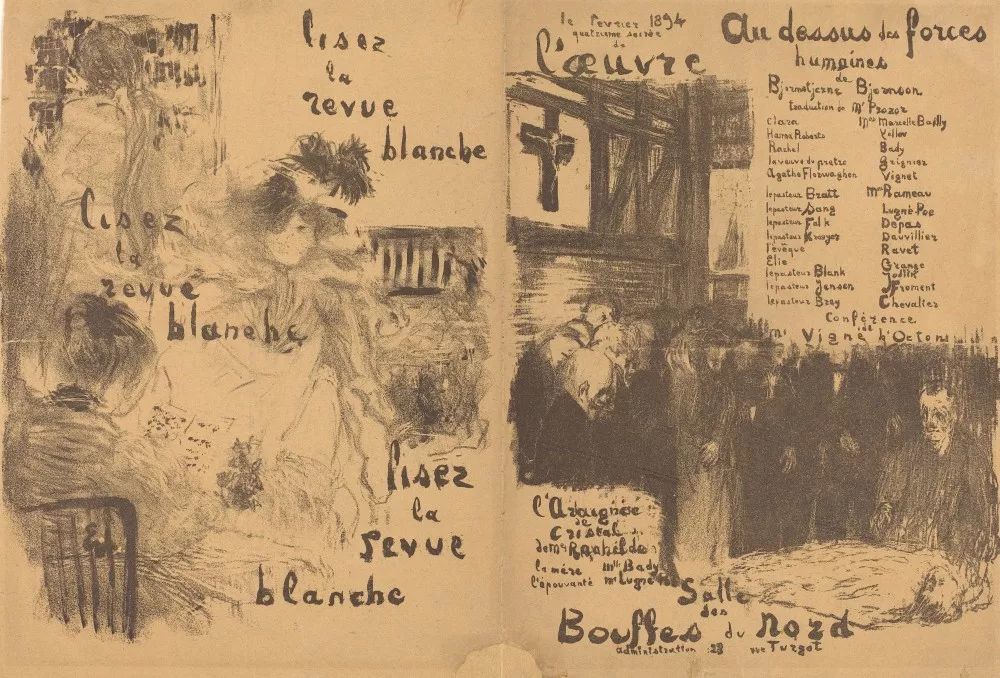 lisez
la
revue
blanche
lisez
la
revue
blanche
lisez
la
revue
blanche
le fevrier 1894
quatrieme soirée
de
l'œuvre
Au dessus des forces
humaines
de
Bjornstjerne Bjornson
traduction de Mr Prozor
Clara Mme Marcelle Bailly
Hanna Roberts
Rachel Bady
la veuve du pretre Grignier
Agathe Vignet
le pasteur Bratt Mrs Rameau
le pasteur Sang Lugné Poe
le pasteur Falk Depas
le pasteur Kroeyer Dauvillier
l'évêque Ravet
Elie Grange
le pasteur Blank
le pasteur Jensen Froment
le pasteur Brey Chevalier
Conférence
de
Mr Vigné d'Octon
l'Araignée
de
Cristal
de Me Rachilde
la mère Mlle Bady
l'épouvanté Mr Lugné Poe
Salle
des
Bouffes du Nord
administration 23 rue Turgot